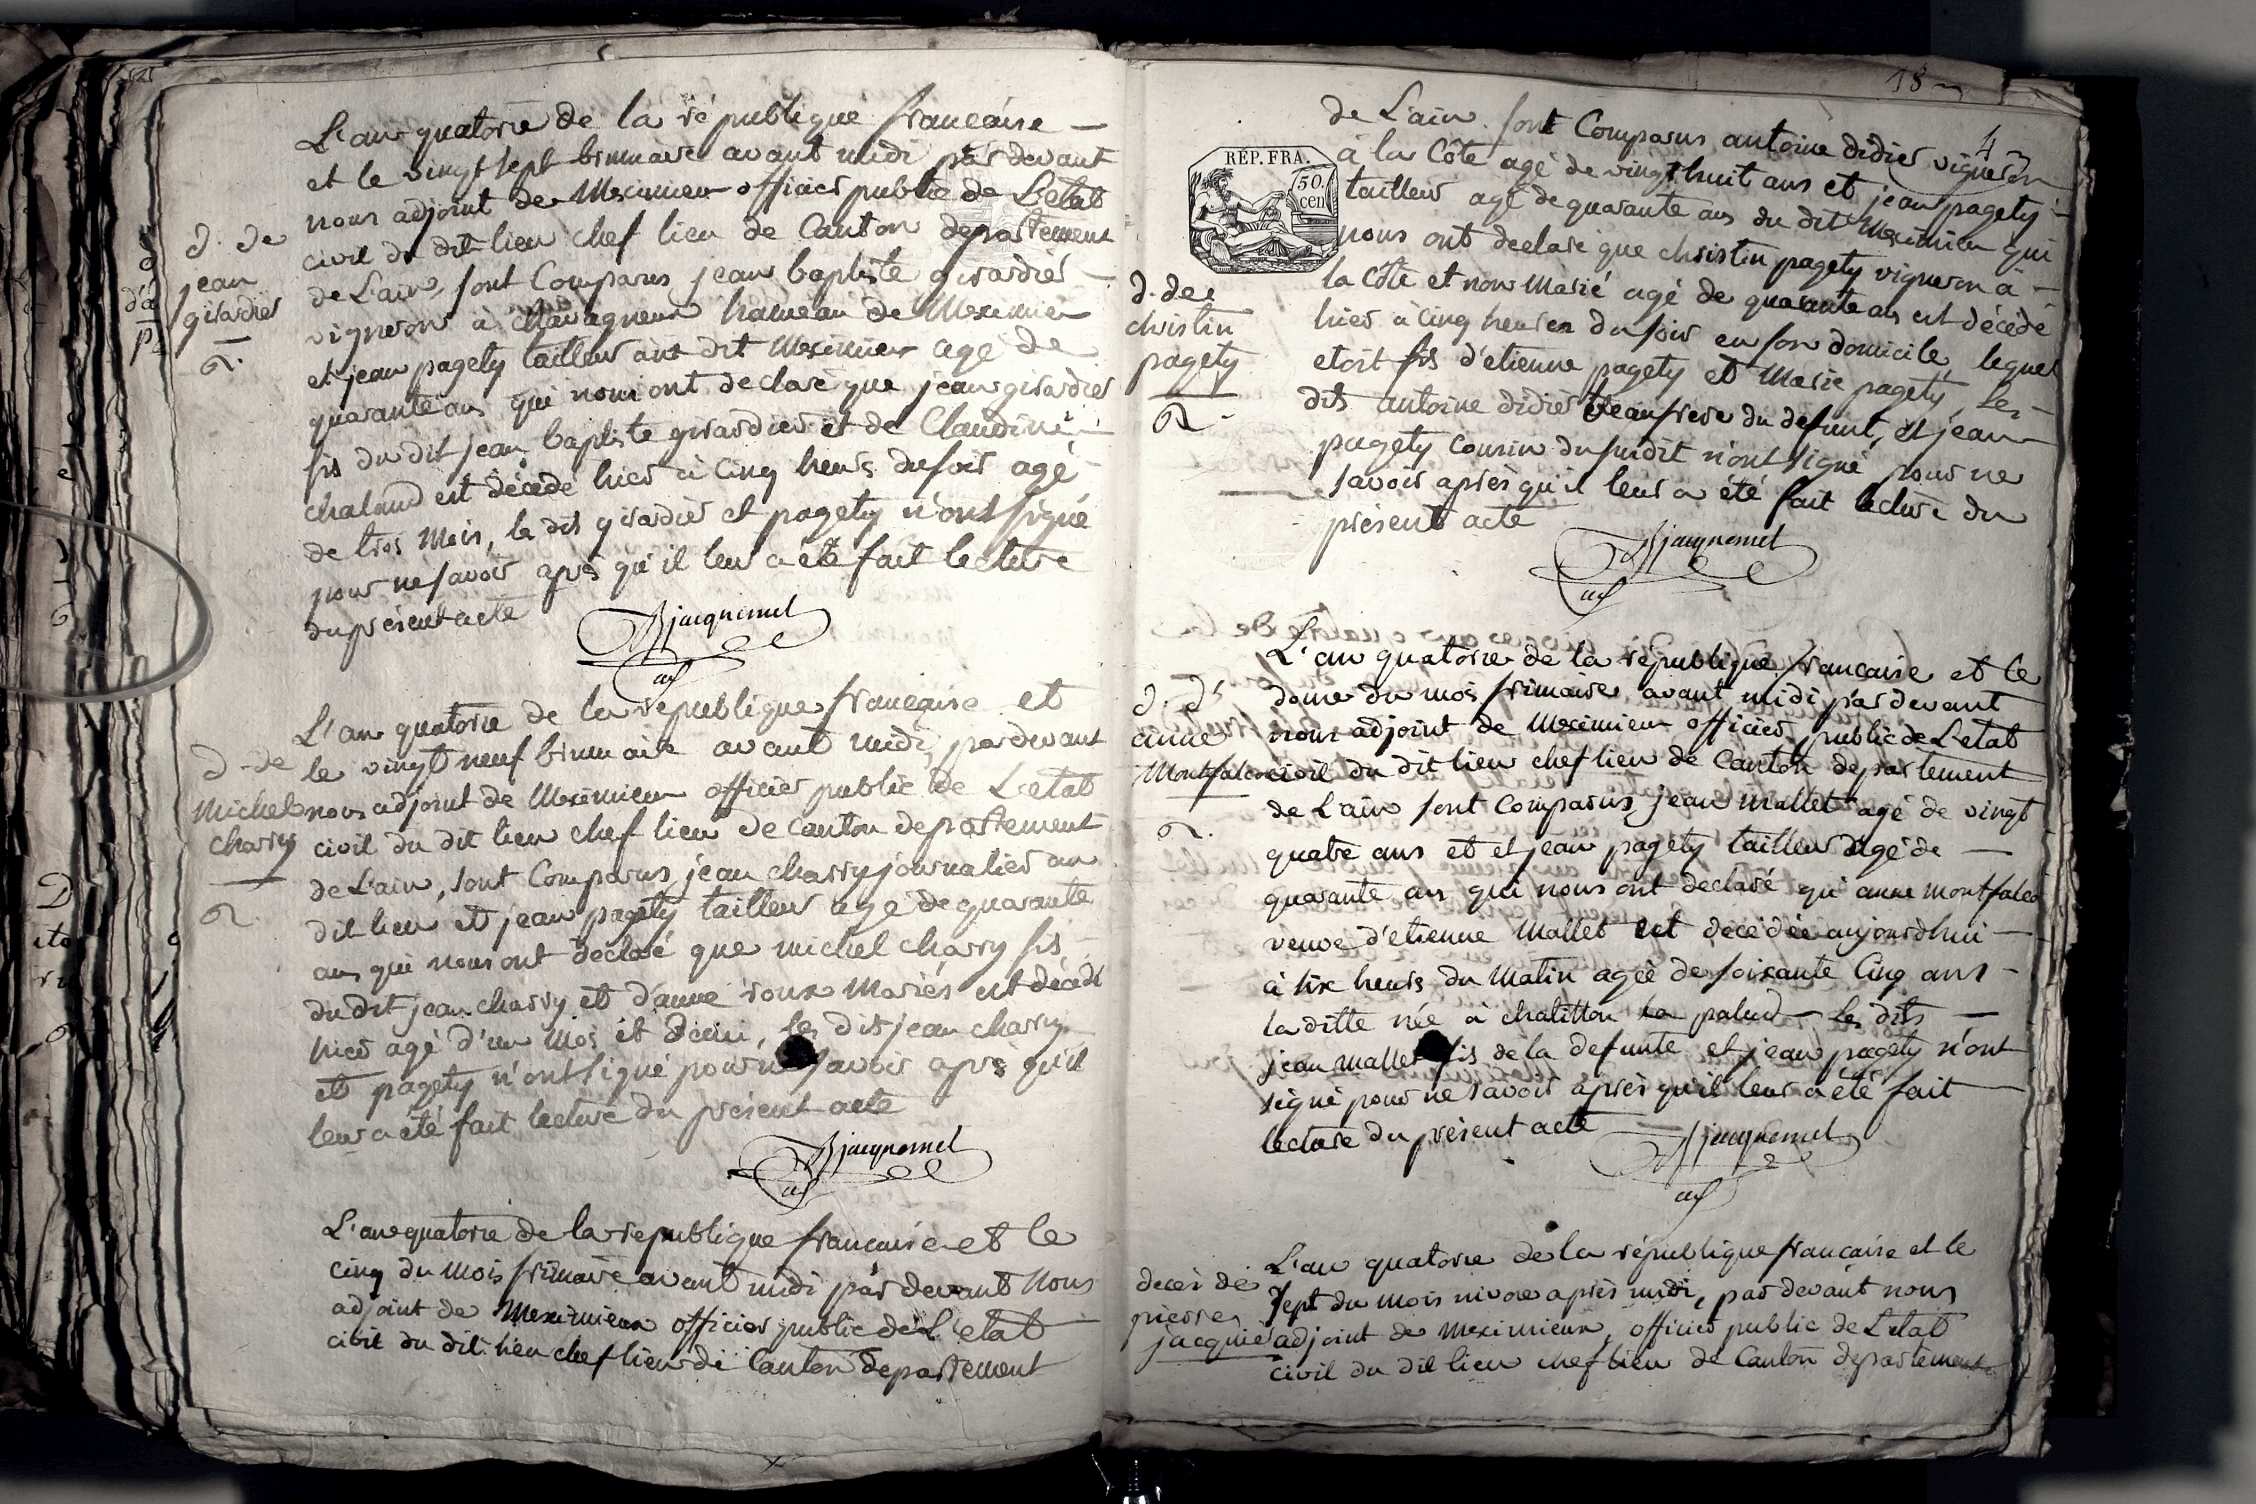 L'an quatorze de la république francaise
et le vingt sept brumaire avant midi par devant
nous adjoint de Meximieux officier public de L'etat
civil du dit lieu chef lieu de Canton departement
d. de
jean
girardier
de L'ain, sont Comparus jean baptiste girardier
vigneron à chavagneux hameau de Meximieux
et jean pagety tailleur au dit Meximieux agé de
quarante ans qui nous ont declaré que jean girardier
fils du dit jean baptiste girardier et de Claudine
chaland est décédé hier à Cinq heurs du soir agé
de trois Mois, le dit girardier et pagety n'ont signé
pour ne savoir après qu'il leur a été fait lecture
du présent acte
jacquemet
L'an quatorze de la république francaise et
le vingt neuf brumaire avant midi, par devant
d. de
Michel
charry
nous adjoint de Meximieux officier public de L'etat
civil du dit lieu chef lieu de canton departement
de L'ain, sont Comparus jean charry journalier au
dit lieu et jean pagety tailleur agé de quarante
ans qui nous ont declaré que michel charry fils
du dit jean charry et d'anne roux Mariés est décédé
hier agé d'un Mois et demi, les dits jean charry
et pagety n'ont signé pour ne savoir après qu'il
leur a été fait lecture du présent acte
jacquemet
L'an quatorze de la republique francaise et le
cinq du Mois frimaire avant midi par devant Nous
adjoint de Meximieux officier public de L'etat
civil du dit lieu chef lieu de Canton departement
18
4
RÉP. FRA.
50.
cen
de L'ain sont Comparus antoine didier vigneron
à la Côte agé de vingt huit ans et jean pagety
tailleur agé de quarante ans du dit Meximieux qui
nous ont declaré que christin pagety vigneron à
d. de
christin
pagety
la Côte et non Marié agé de quarante ans est décédé
hier à cinq heures du soir en son domicile, lequel
etoit fils d'etienne pagety et Marie pagety, les
dits antoine didier beaufrere du defunt, et jean
pagety cousin du susdit n'ont signé pour ne
savoir après qu'il leur a été fait lecture du
présent acte
jacquemet
L'an quatorze de la république francaise et le
douze du mois frimaire avant midi par devant
d. d'
anne
Montfalcon
nous adjoint de Meximieux officier public de L'etat
civil du dit lieu chef lieu de Canton departement
de L'ain sont comparus jean mallet agé de vingt
quatre ans et et jean pagety tailleur agé de
quarante ans qui nous ont declaré qu'anne montfalcon
veuve d'etienne Mallet est décédée aujourdhui
à six heurs du Matin agée de soixante Cinq ans
la ditte née à chatillon la palud les dits
jean mallet fils de la defunte et jean pagety n'ont
signé pour ne savoir après qu'il leur a été fait
lecture du présent acte
jacquemet
L'an quatorze de la république francaise et le
sept du mois nivose après midi, par devant nous
decès de
pierre
jacquier
adjoint de Meximieux, officier public de L'etat
civil du dit lieu chef lieu de Canton departement